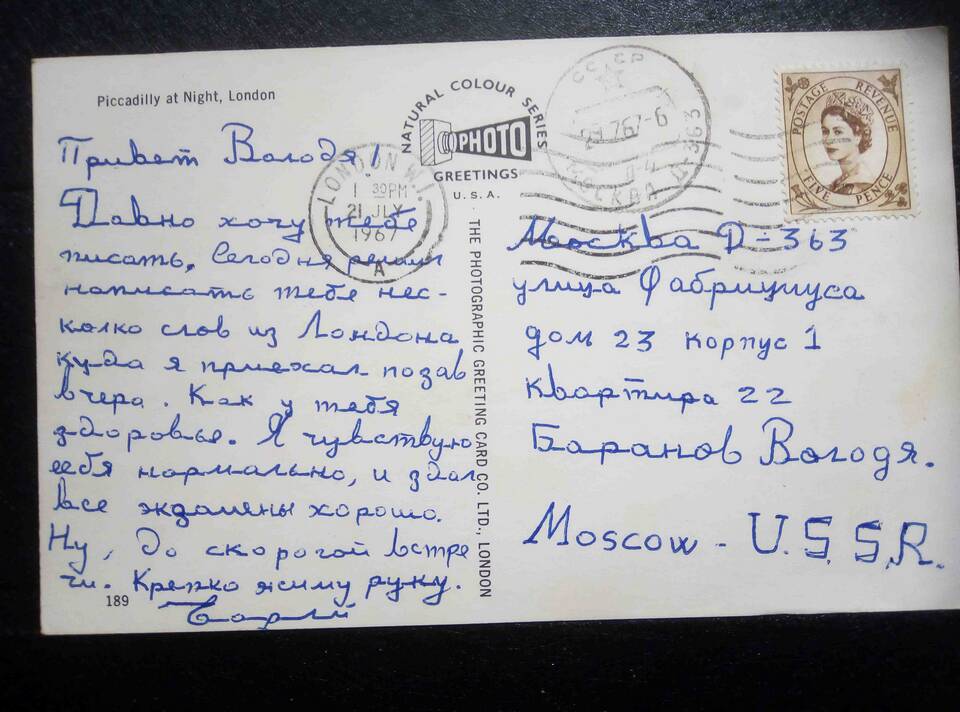 Piccadilly at Night, London
NATURAL COLOUR SERIES
PHOTO
GREETINGS
U.S.A.
THE PHOTOGRAPHIC GREETING CARD CO. LTD., LONDON
LONDON W.1.
1 30PM
21 JLY
1967
A
СССР
29.7.67-6
МОСКВА Д-363
POSTAGE REVENUE
FIVE PENCE
Привет Вологдя!
Давно хочу тебе
писать. Сегодня решил
написать тебе нес-
колко слов из Лондона
куда я приехал позав
вчера. Как у тебя
здоровье. Я чувствую
себя нормально, и здал
все экзамены хорошо.
Ну, до скорогой встре
чи. Крепко жиму руку.
189
Москва Д-363
улица Фабрициуса
дом 23 корпус 1
квартира 22
Баранов Володя.
Moscow - U.S.S.R.